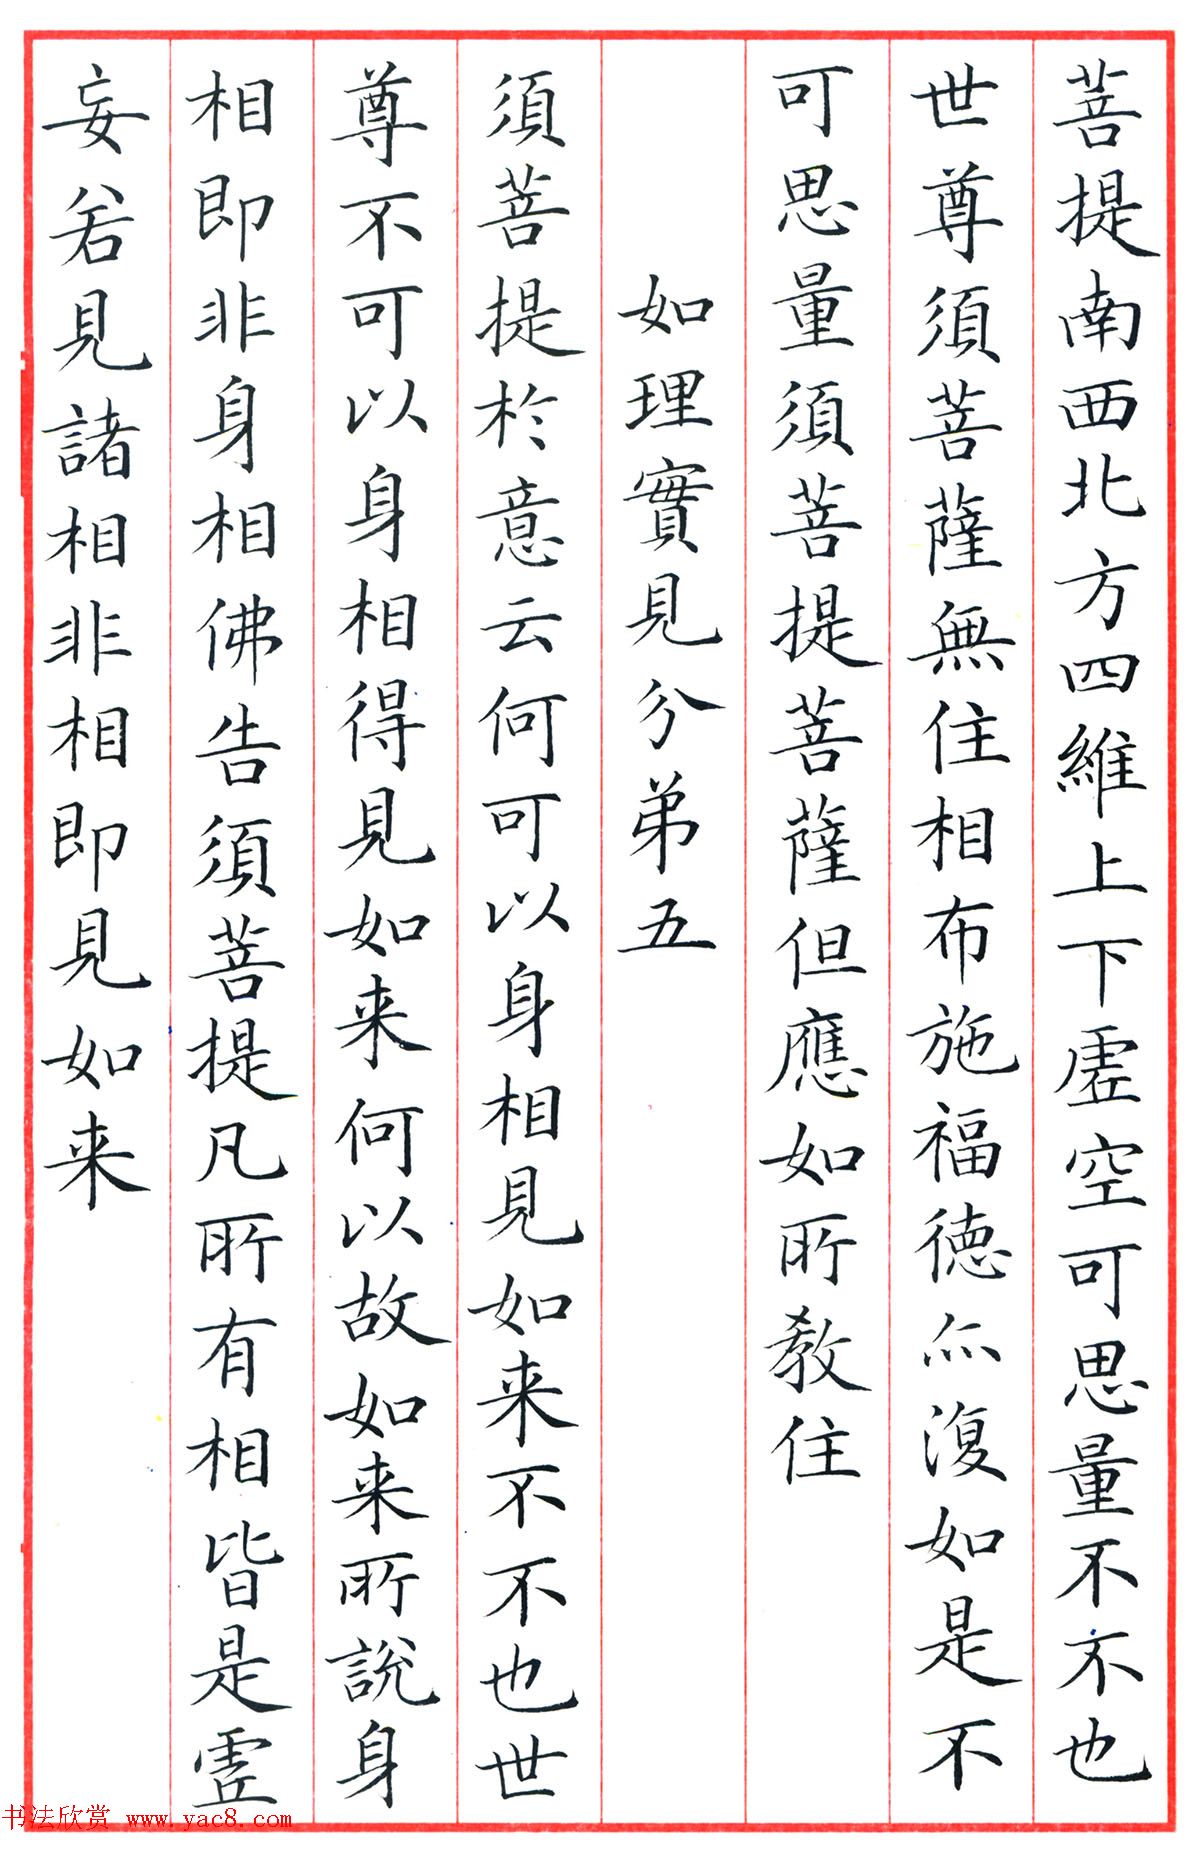 菩提南西北方四維上下虛空可思量不不也
世尊須菩薩無住相布施福德亦復如是不
可思量須菩提菩薩但應如所教住
如理實見分弟五
須菩提於意云何可以身相見如来不不也世
尊不可以身相得見如来何以故如来所說身
相即非身相佛告須菩提凡所有相皆是虛
妄若見諸相非相即見如来
书法欣赏 www.yac8.com